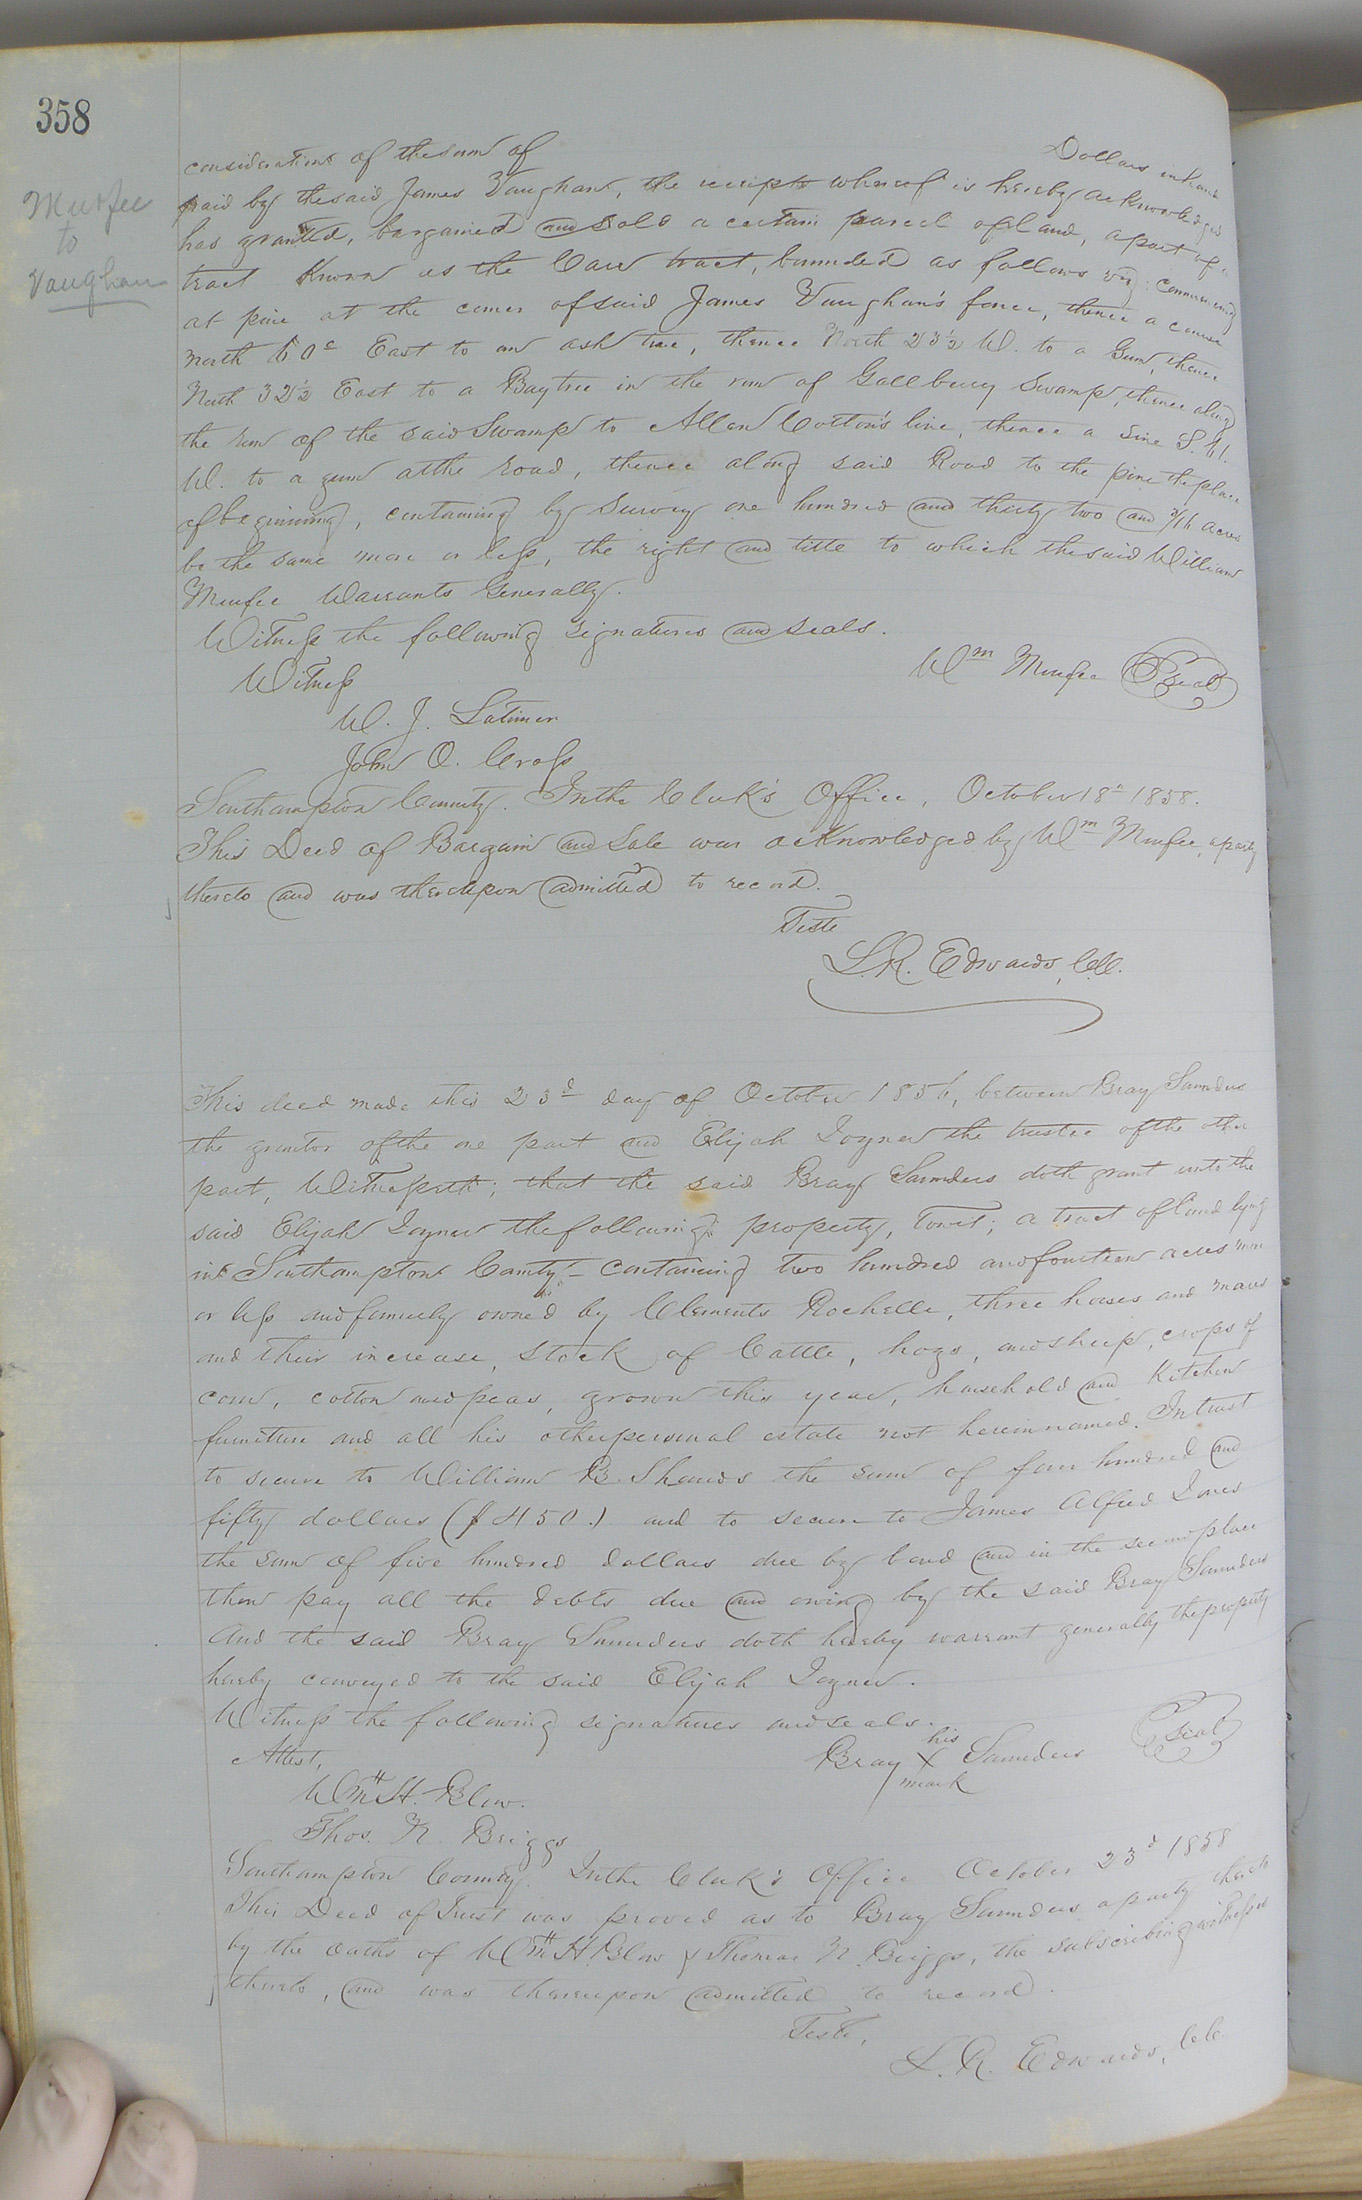 358
Murfee
to
Vaughan
consideration of the sum of Dollars in hand
paid by the said James Vaughan, the receipt whereof is hereby acknowledged
has granted, bargained and sold a certain parcel of land, a part of a
tract Known as the tract, bounded as follows viz: commencing
at pine at the corner of said James Vaughan's fence, thence a course
North 60° East to an ash tree, thence North 23½ W. to a Gum, thence
North 32½ East to a Bay tree in the run of Gallberry Swamp, thence along
the run of the said Swamp to Allen Cotton's line, thence a line S. 61.
W. to a gum at the road, thence along said Road to the pine the place
of beginning, containing by survey one hundred and thirty two and /16 acres
be the same more or less, the right and title to which the said William
Murfee Warrants Generally.
Witness the following signatures and seals.
Witness Wm Murfee Seal
W. J. Latimer
John O. Cross
Southampton County. In the Clerk's Office, October 18th 1858.
This Deed of Bargain and Sale was acKnowledged by Wm Murfee, a party
thereto and was thereupon admitted to record.
Teste
L. R. Edwards, C.C.
This deed made this 23d day of October 185, between Bray Saunders
the grantor of the one part and Elijah Joyner the trustee of the other
part, Witnesseth; that the said Bray Saunders doth grant unto the
said Elijah Joyner the following property, towit; a tract of land lying
in Southampton County - containing two hundred and fourteen acres more
or less and formerly owned by Clements Rochelle, three horses and mares
and their increase, stock of Cattle, hogs, and sheep, crops of
corn, cotton and peas, grown this year, household and Kitchen
furniture and all his other personal estate not herein named. In trust
to secure to William B. Shands the sum of four hundred and
fifty dollars ($450.) and to secure to James Alfred Jones
the sum of five hundred dollars due by bond and in the second place
then pay all the debts due and owing by the said Bray Saunders
And the said Bray Saunders doth hereby warrant generally the property
hereby conveyed to the said Elijah Joyner.
Witness the following signatures and seals.
Attest, Bray his X mark Saunders Seal
Wm H. Blow.
Thos. N. Briggs
Southampton County. In the Clerk's Office October 23d 1858
This Deed of Trust was proved as to Bray Saunders a party thereto
by the oaths of Wm H. Blow & Thomas N. Briggs, the subscribing witnesses
thereto, and was thereupon admitted to record.
Teste,
L. R. Edwards, C.C.